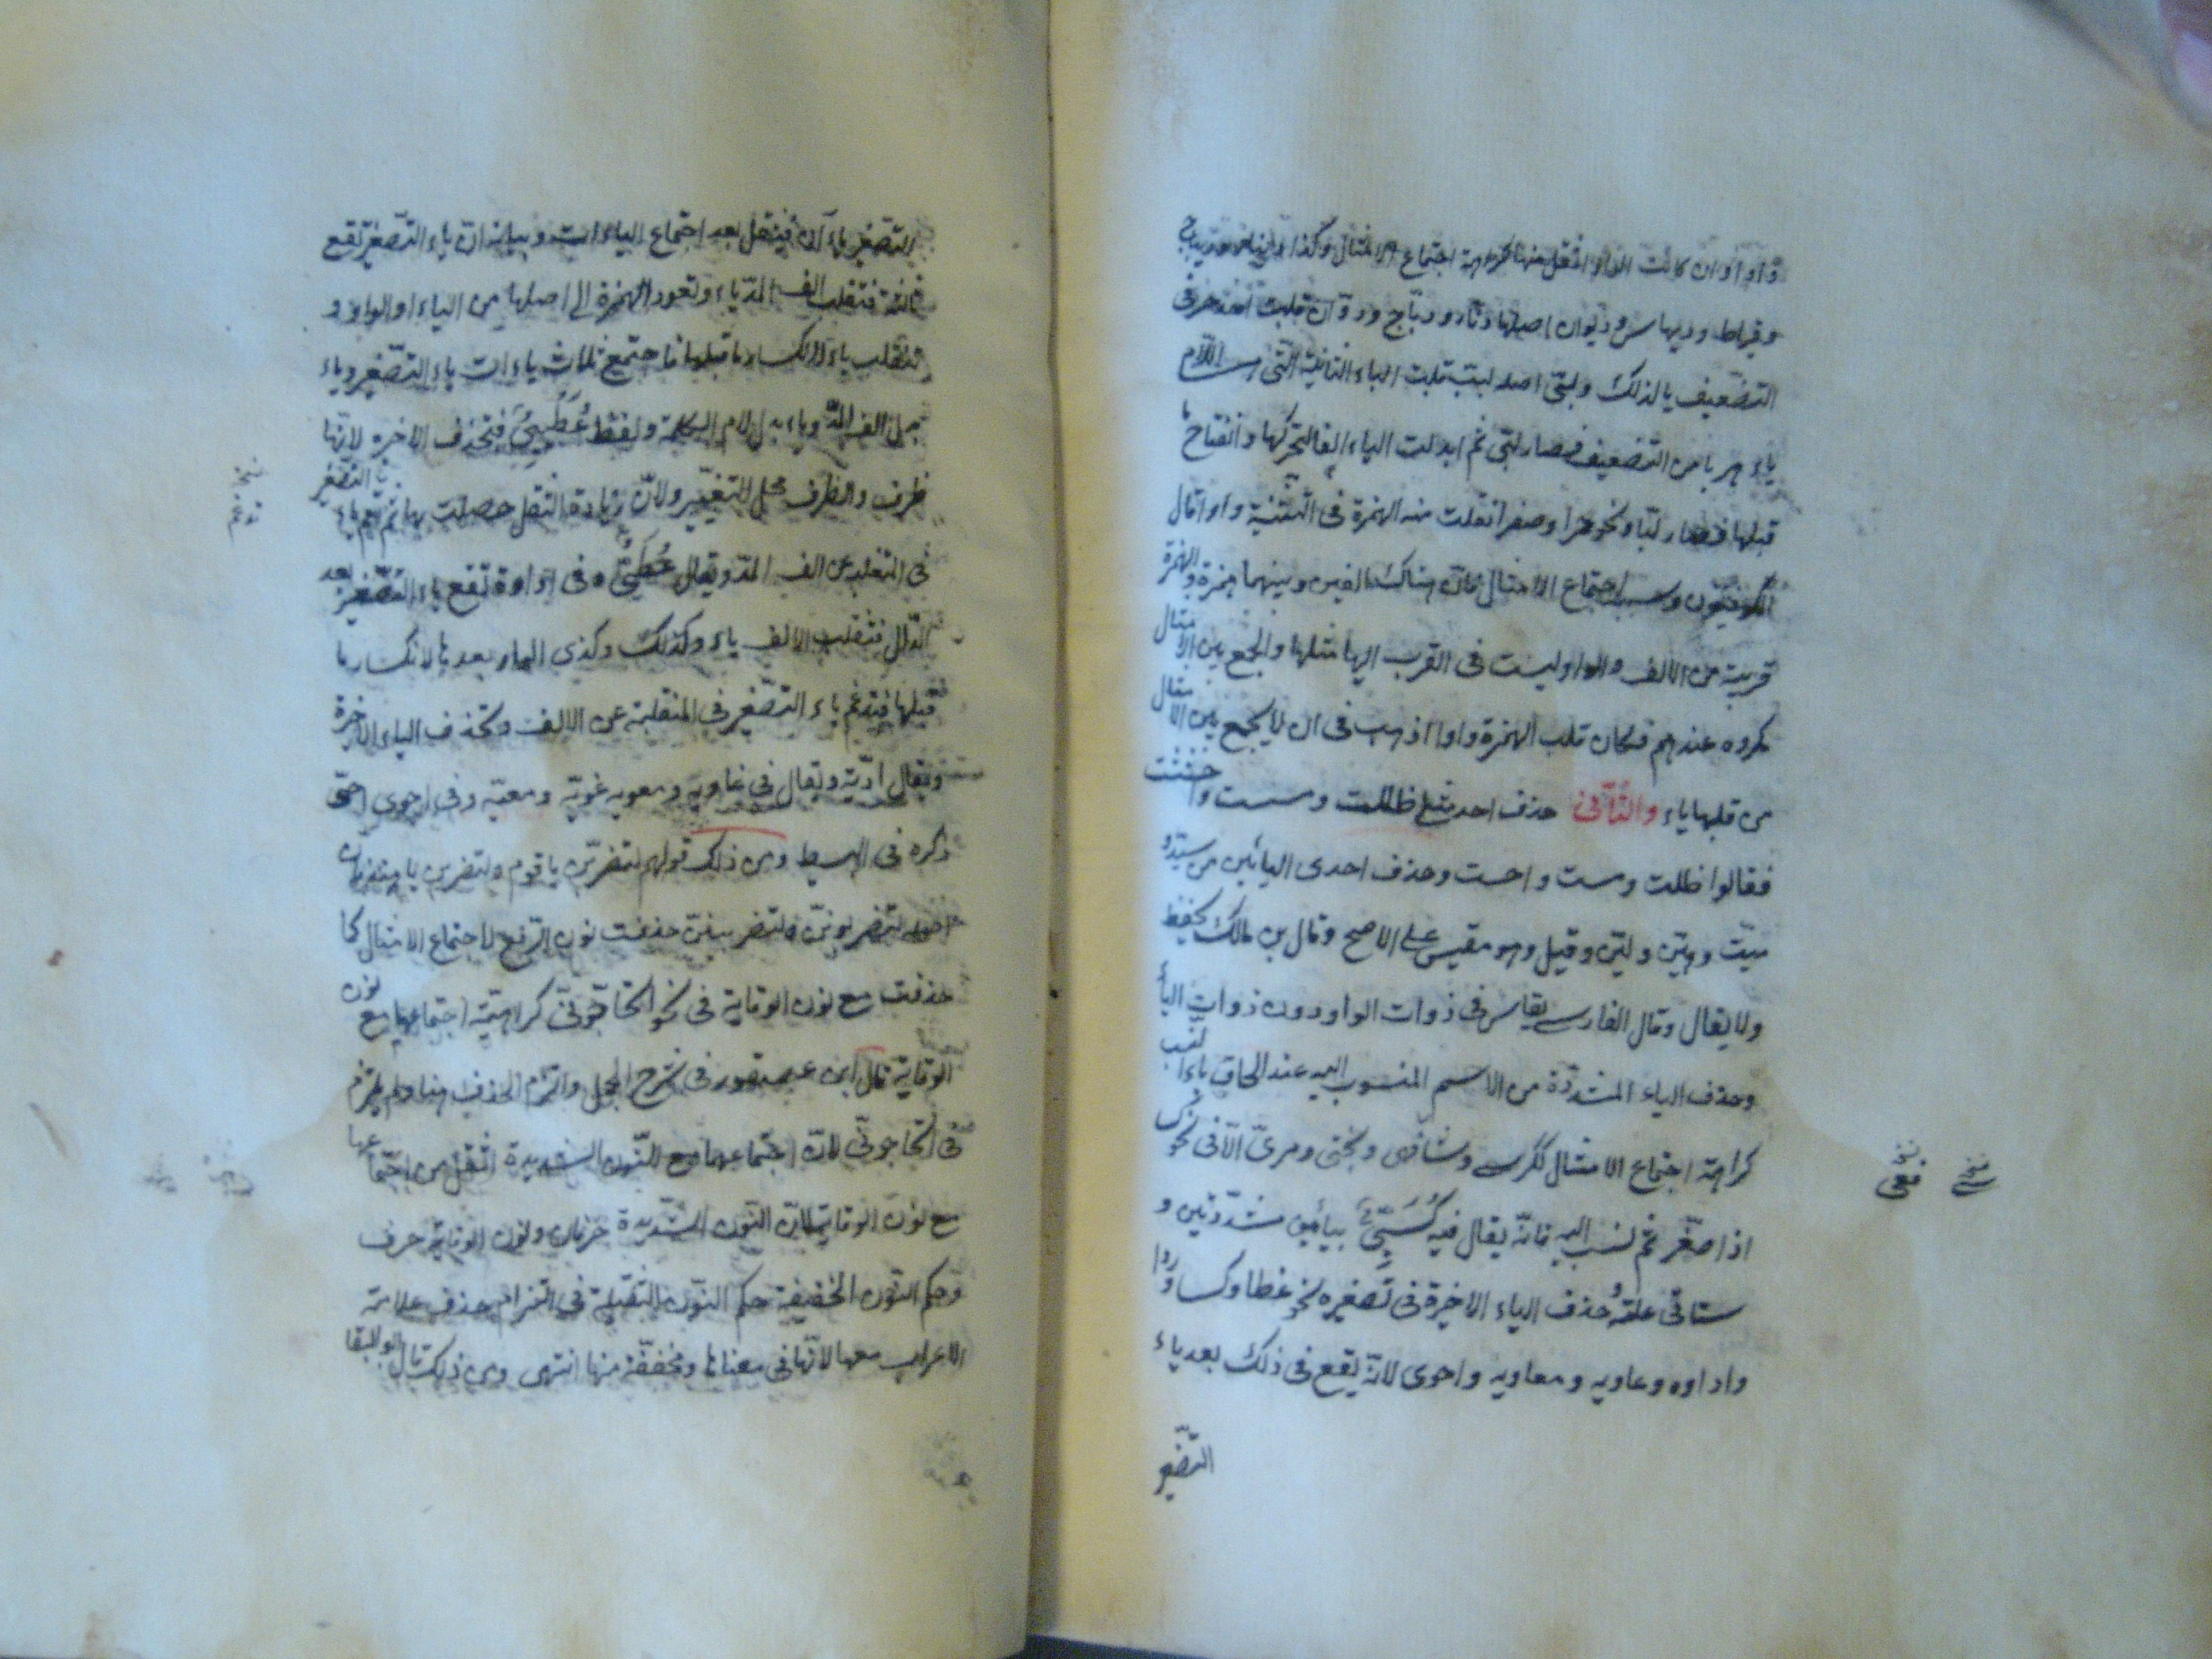 واوا وان كانت الواو اثقل منها لكراهة اجتماع الامثال وكذا
وقيراط وديماس وديوان اصلها دنار ودباج ودوان قلبت احد حرفى
التضعيف يا لذلك ولبّى اصله لبب قلبت الباء الثانية التى هى اللام
ياء هربا من التضعيف فصار لبّى ثم ابدلت الياء الفا لتحركها وانفتاح ما
قبلها فصار لبّا ونحو حمرا وصفرا تقلب منه الهمزة فى التثنية واوا قال
الكوفيّون وسببه اجتماع الامثال فانّ هناك الفين وبينهما همزة والهمزة
قريبة من الالف والواو ليست فى القرب اليها مثلها والجمع بين الامثال
مكروه عندهم فكان قلب الهمزة واوا اذهب فى ان لا يجمع بين الامثال
من قلبها ياء والثانى حذف احد مثلى ظللت ومسست واحسست
فقالوا ظلت ومست واحست وحذف احدى اليائين من سيّد و
ميّت وهيّن وليّن وقيل وهو مقيس على الاصح وقال بن مالك يحفظ
ولا يقال وقال الفارسى يقاس فى ذوات الواو دون ذوات اليا
وحذف الياء المشددّة من الاسم المنسوب اليه عند الحاق ياء النسب
كراهة اجتماع الامثال ككرسى وشافعى وبختى ومرمىّ الّا فى نحو
اذا صغّر ثم نسب اليه فانّه يقال فيه كُسَيِّىّ بيائين مشدّدتين و
ستاتى علّة حذف الياء الاخيرة فى تصغيره نحو غطا وكسا وردا
واداوه وغاويه ومعاويه واحوى لانّه يقع فى ذلك بعد ياء
التصغير
التصغير ياءان فيثقل بعد اجتماع الياءات وبيانه ان ياء التصغير تقع
ثالثة فتقلب الف المدّ ياء وتعود الهمزة الى اصلها من الياء او الواو و
تنقلب ياء لانكسار ما قبلها فاجتمع ثلاث ياءات ياء التصغير وياء
بدل الف المدّ وياء بدل لام الكلمة ولفظه عُطَيِّىٌ فتحذف الاخيره لانّها
طرف والطرف محل التغيير ولانّ زيادة الثقل حصلت بها ثم تدغم ياء التصغير
فى المنقلبه عن الف المدّ ويقال عُطَىٌّ وفى اداوة تقع ياء التصغير بعد
الدّال فتقلب الالف ياء وكذلك وكذى الواو بعدها لانكسار ما
قبلها فتدغم ياء التصغير فى المنقلبة عن الالف وتحذف الياء الاخرة
ويقال اديّة ويقال فى غاويه ومعويه غويّة ومعيّه وفى احوى احىّ
ذكره فى البسيط ومن ذلك قولهم لتضربنّ يا قوم ولتضربن يا هند فان
اصله لتضربوننّ ولتضربيننّ حذفت نون الرفع لاجتماع الامثال كما
حذفت مع نون الوقاية فى نحو اتحاجّونّى كراهيّة اجتماعها مع نون
الوقاية قال ابن عصفور فى شرح الجمل والتزم الحذف هنا ولم يلتزم
فى اتحاجونّى لانّ اجتماعهما مع النّون الشديدة اثقل من اجتماعها
مع نون الوقاية لانّ النّون الشديدة حرفان ونون الوقاية حرف
وحكم النّون الخفيفة حكم النّون الثقيلة فى التزام حذف علامة
الاعراب معها لانّها فى معناها ومخففّة منها انتهى ومن ذلك قال ابو البقا